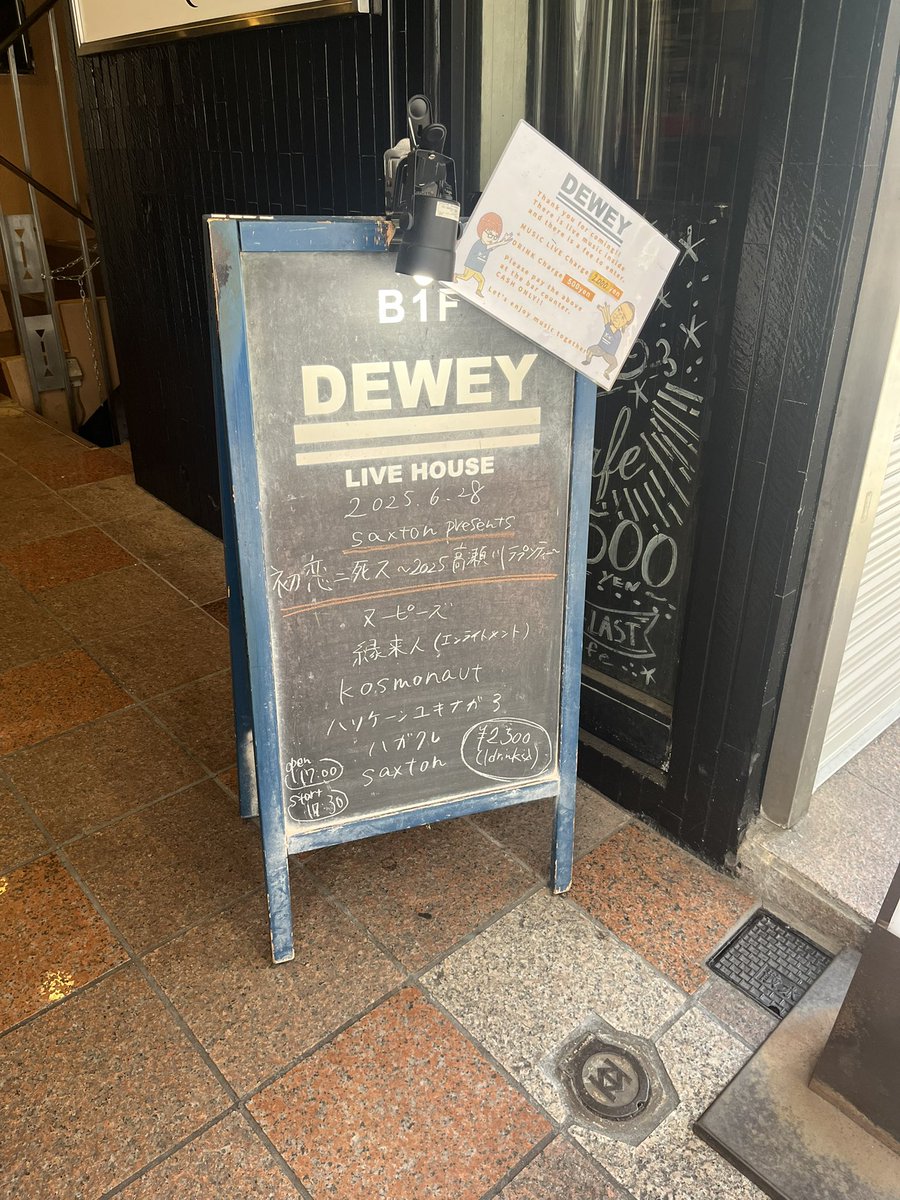 B1F
DEWEY
LIVE HOUSE
2025.6.28
saxton presents
初恋ニ死ス～2025高瀬川ラプソディー～
ヌーピーズ
縁来人(エンライトメント)
kosmonaut
ハリケーンユキナガ3
ハガクレ
saxton
open
17:00
start
17:30
¥2300
(1drink込)
DEWEY
Thank you for coming!!
There is live music inside
and there is a fee to enter.
MUSIC LIVE Charge 2,000 yen
+
DRINK Charge 500yen
Please pay the above
at the bar counter.
CASH ONLY!!
Let's enjoy music together
YEN
LAST